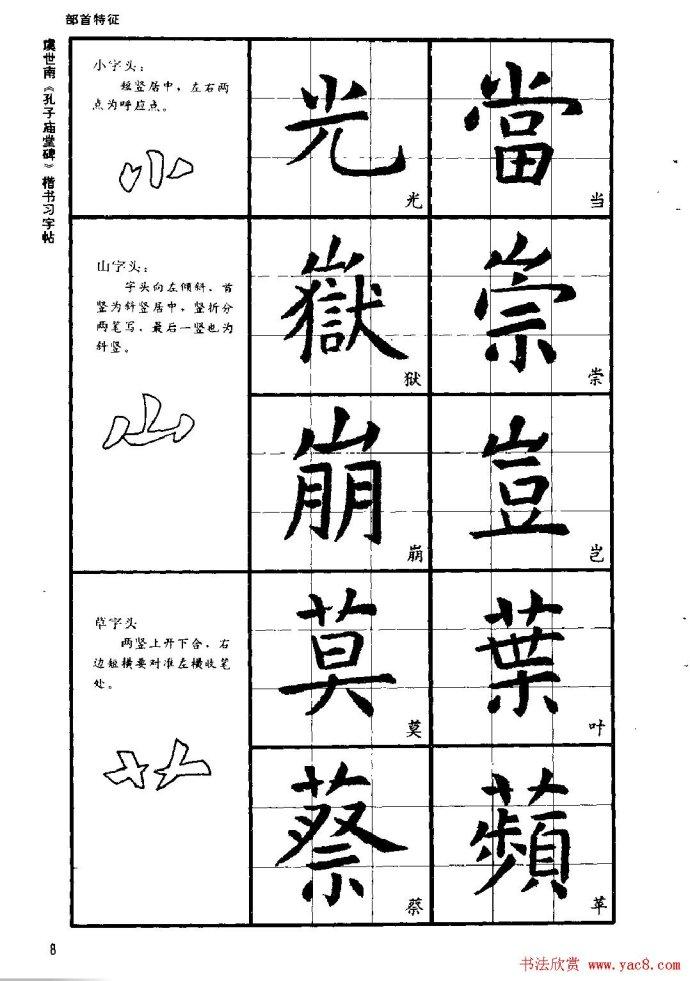 部首特征
虞世南《孔子庙堂碑》楷书习字帖
小字头：
短竖居中，左右两
点为呼应点。
小
光
光
當
当
山字头：
字头向左倾斜，首
竖为斜竖居中，竖折分
两笔写，最后一竖也为
斜竖。
山
嶽
狱
崇
崇
崩
崩
豈
岂
草字头
两竖上开下合，右
边短横要对准左横收笔
处。
艹
莫
莫
葉
叶
蔡
蔡
蘋
苹
8
书法欣赏 www.yac8.com